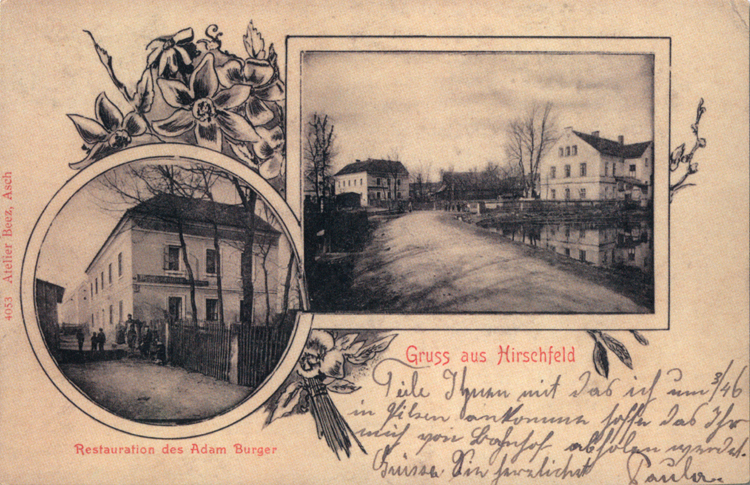 4053 Atelier Beez, Asch
Gruss aus Hirschfeld
Restauration des Adam Burger
Teile Ihnen mit das ich um 3/46
in Pilsen ankomme hoffe das Ihr
mich von Bahnhof abholen werdet.
Grüsse Sie herzlichst Paula.